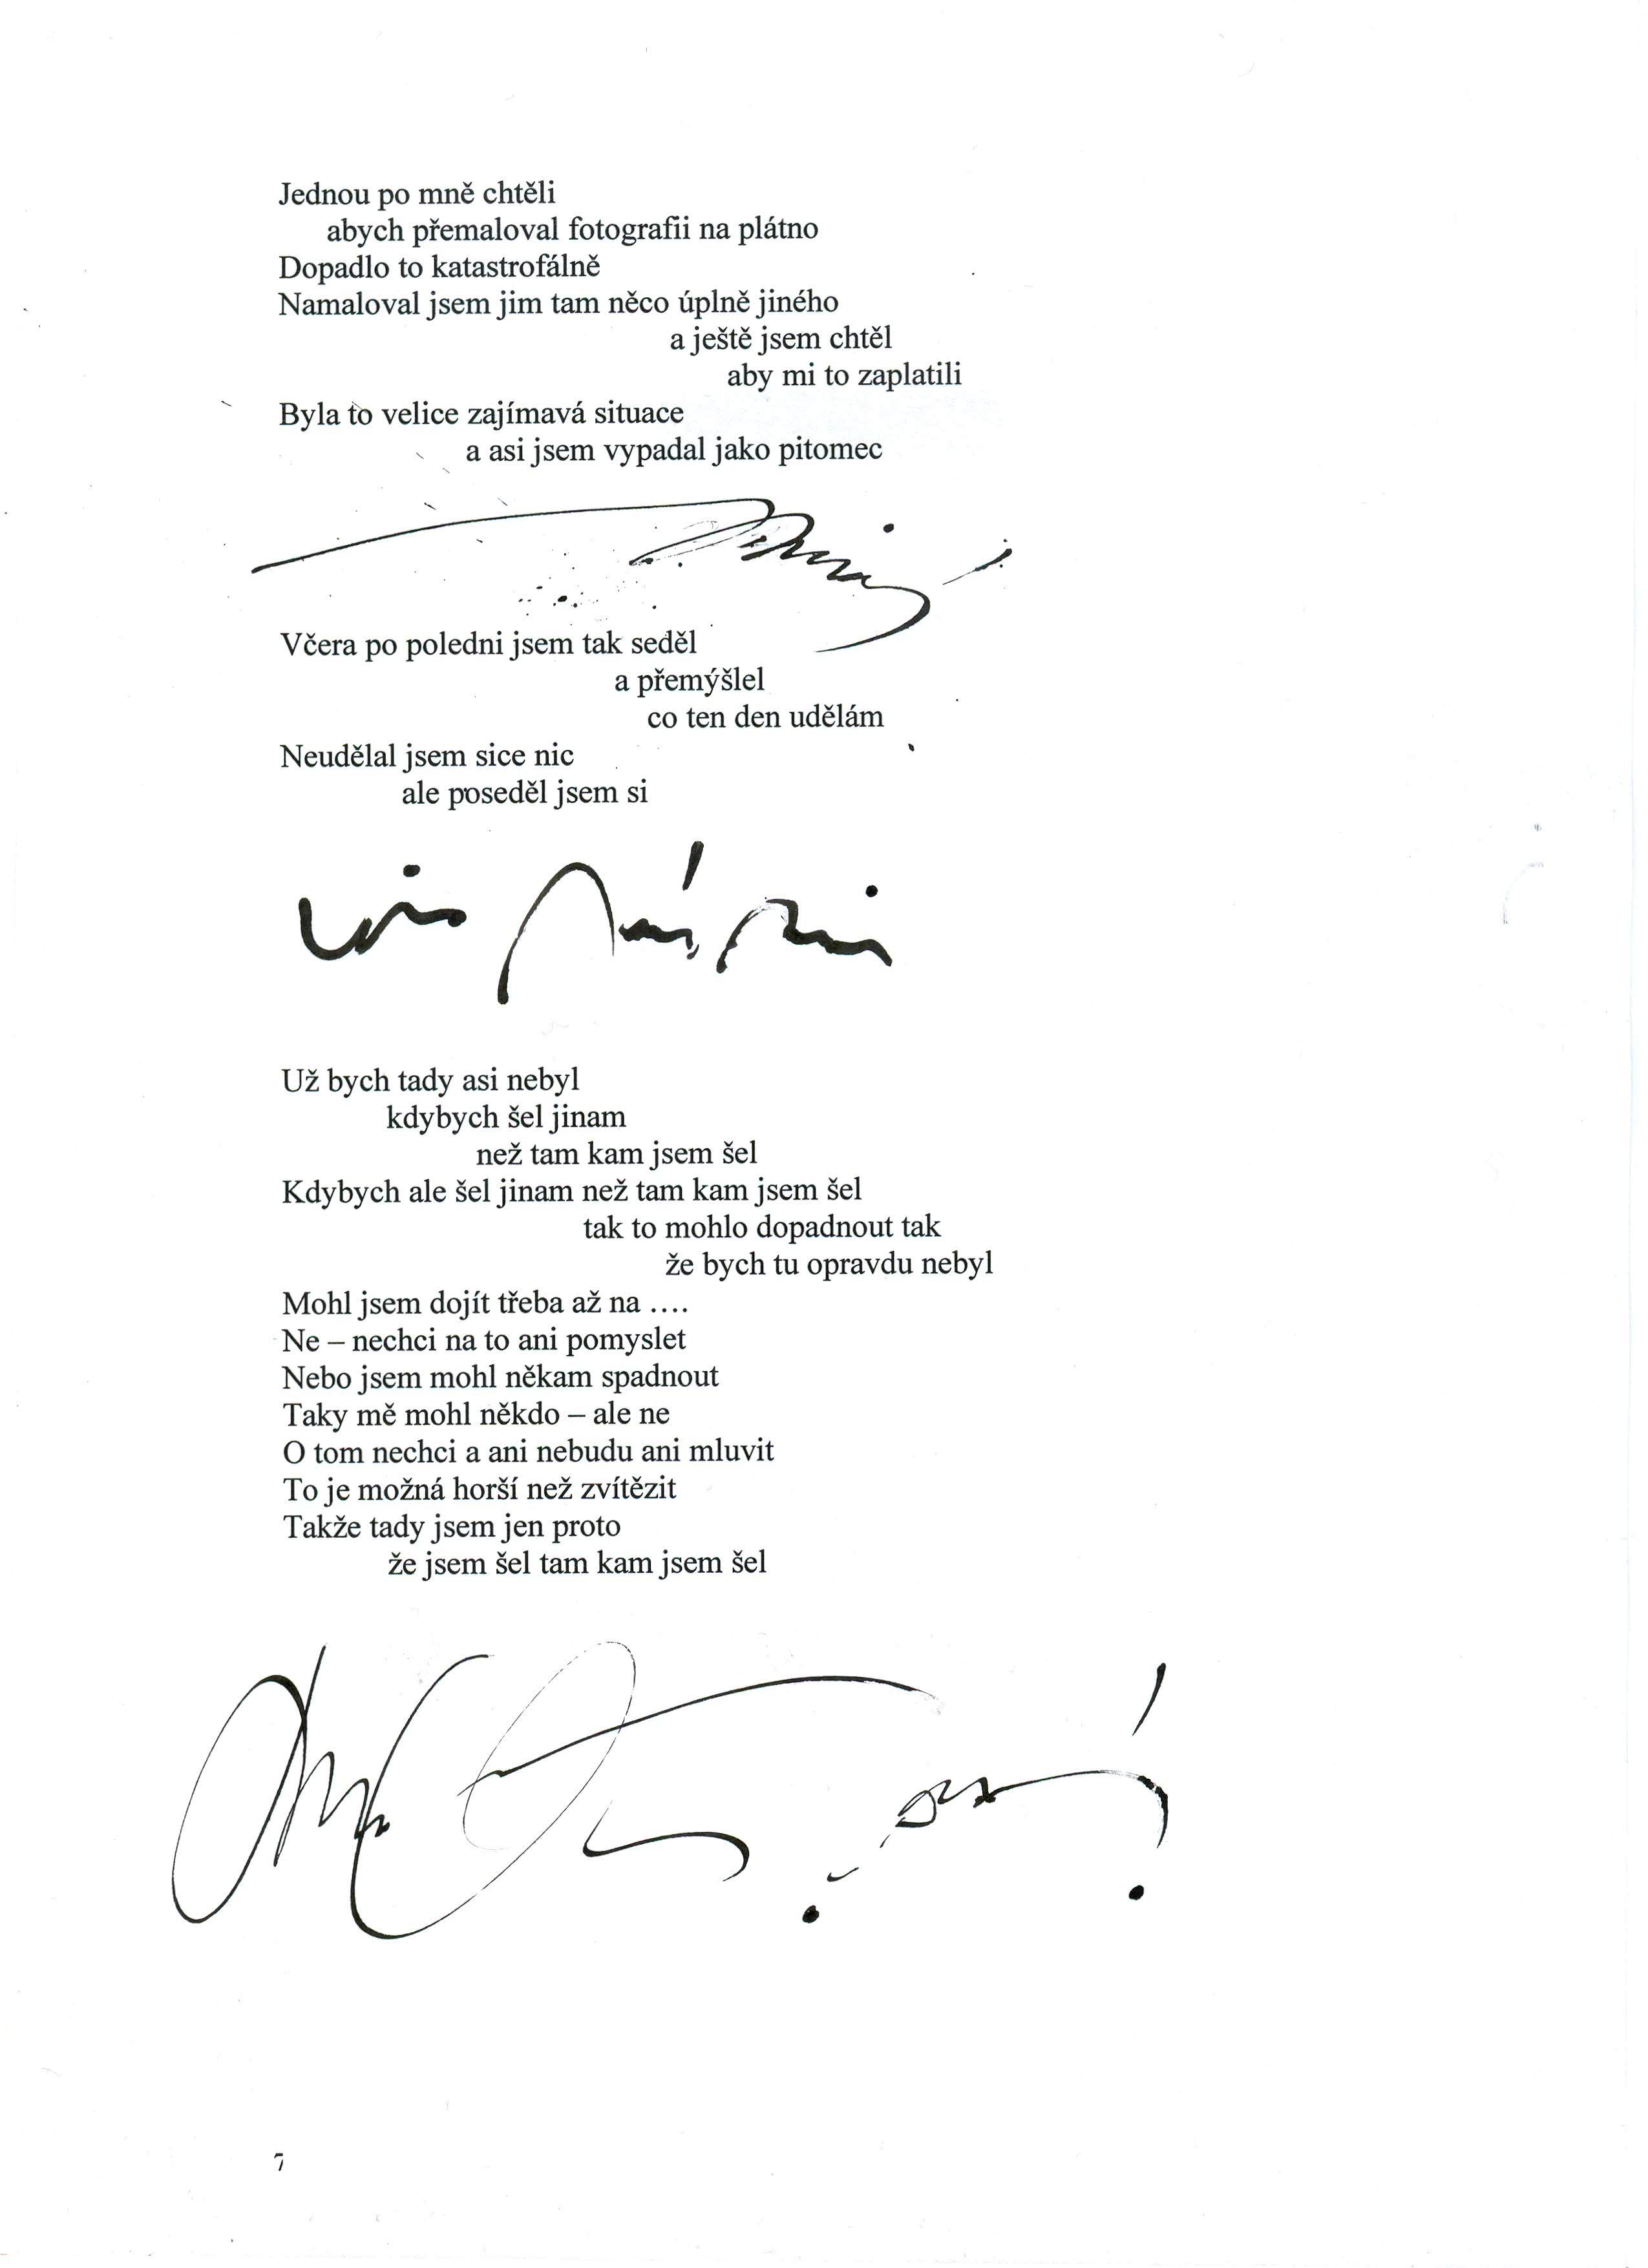 Jednou po mně chtěli
abych přemaloval fotografii na plátno
Dopadlo to katastrofálně
Namaloval jsem jim tam něco úplně jiného
a ještě jsem chtěl
aby mi to zaplatili
Byla to velice zajímavá situace
a asi jsem vypadal jako pitomec
Včera po poledni jsem tak seděl
a přemýšlel
co ten den udělám
Neudělal jsem sice nic
ale poseděl jsem si
Už bych tady asi nebyl
kdybych šel jinam
než tam kam jsem šel
Kdybych ale šel jinam než tam kam jsem šel
tak to mohlo dopadnout tak
že bych tu opravdu nebyl
Mohl jsem dojít třeba až na ….
Ne – nechci na to ani pomyslet
Nebo jsem mohl někam spadnout
Taky mě mohl někdo – ale ne
O tom nechci a ani nebudu ani mluvit
To je možná horší než zvítězit
Takže tady jsem jen proto
že jsem šel tam kam jsem šel
7